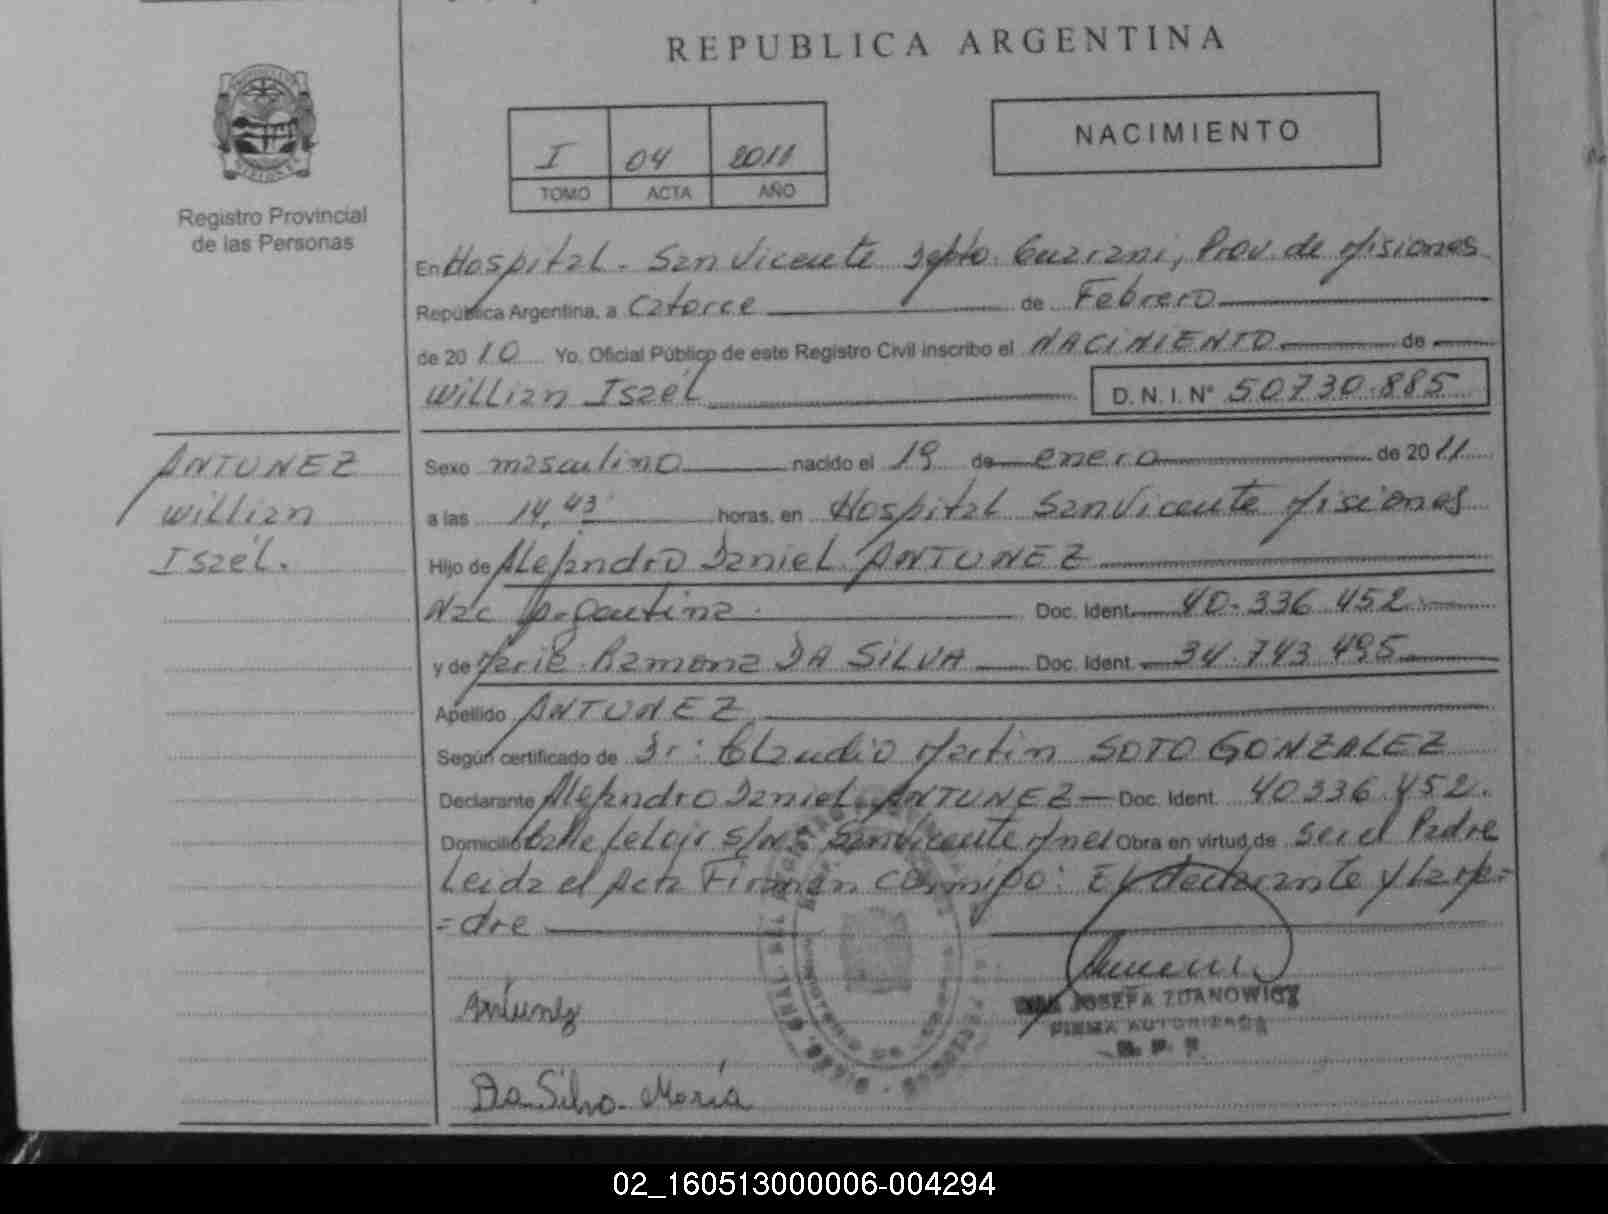 REPUBLICA ARGENTINA
Registro Provincial
de las Personas
I 04 2011
TOMO ACTA AÑO
NACIMIENTO
En Hospital. San Vicente Depto. Guarani, Prov. de Misiones
República Argentina, a Catorce de Febrero
de 2010 Yo, Oficial Público de este Registro Civil inscribo el NACIMIENTO de
Willian Isaél D. N. I. N° 50730.885
ANTUNEZ
Willian
Isaél.
Sexo masculino nacido el 19 de enero de 2011
a las 14,43 horas, en Hospital San Vicente Misiones
Hijo de Alejandro Daniel ANTUNEZ
Nac Argentina. Doc. Ident. 40.336.452
y de Ramona DA SILVA Doc. Ident. 34.743.495
Apellido ANTUNEZ
Según certificado de Dr: Claudio Martin SOTO GONZALEZ
Declarante Alejandro Daniel ANTUNEZ Doc. Ident. 40336.452.
Domicilio Calle s/n° San Vicente Obra en virtud de ser el Padre
Leida el Acta Firman conmigo: El declarante y la ma=
=dre
Antunez
JOSEFA ZDANOWICZ
FIRMA AUTORIZADA
R. P. P.
Da Silva María
02_160513000006-004294